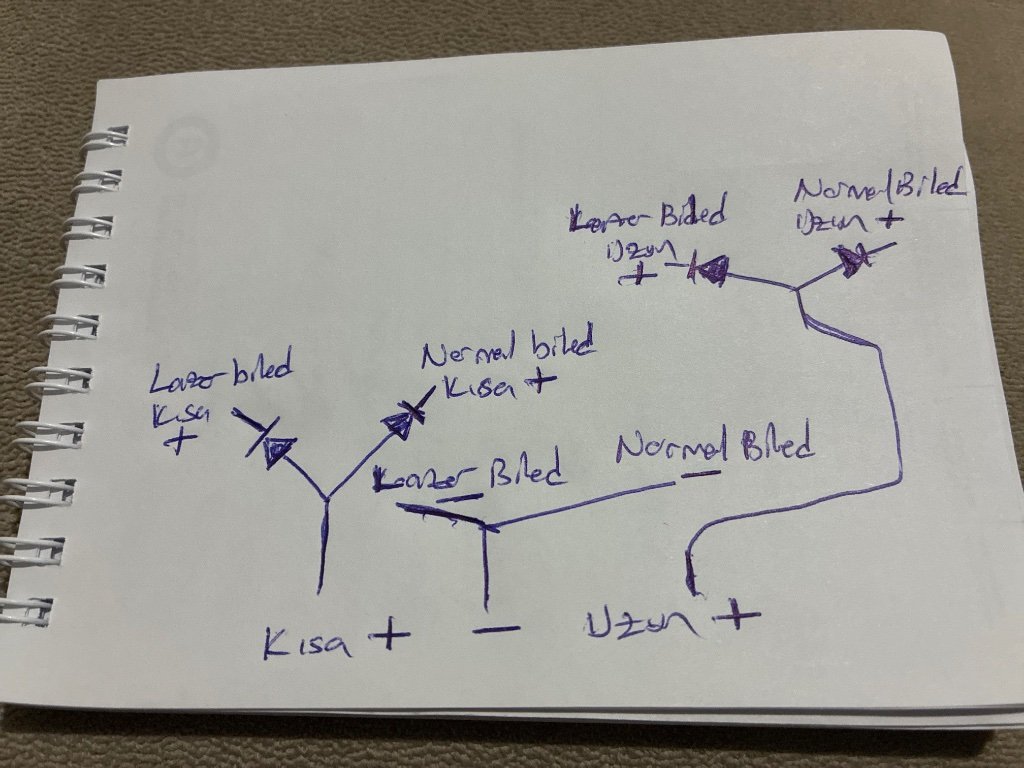 Lazer Biled
Uzun
+
Normal Biled
Uzun +
Lazer biled
Kısa
+
Normal biled
Kısa +
Lazer Biled
—
Normal Biled
—
Kısa +
—
Uzun +